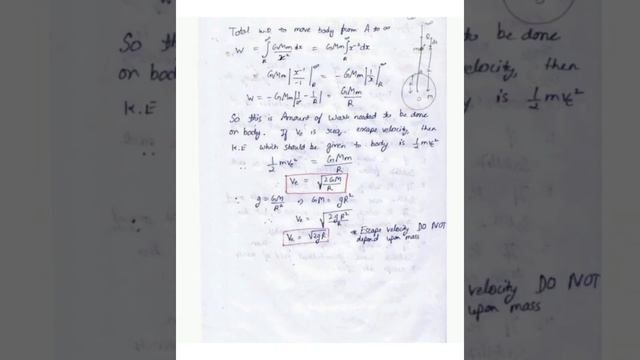 Total W.D to move body from A to ∞
W = ∫_R^∞ GMm/x² dx = GMm ∫_R^∞ x⁻² dx
= GMm |x⁻¹/-1|_R^∞ = - GMm |1/x|_R^∞
W = - GMm |1/∞ - 1/R| = GMm/R
So this is Amount of Work needed to be done
on body. If Ve is req. escape velocity, then
K.E which should be given to body is 1/2 mVe²
∴ 1/2 mVe² = GMm/R
Ve = √(2GM/R)
∴ g = GM/R² ⇒ GM = gR²
Ve = √(2gR²/R)
Ve = √2gR
* Escape velocity DO NOT
depend upon mass
So th
on bod
K.E
to be done
elocity, then
is 1/2 mVe²
velocity DO NOT
upon mass